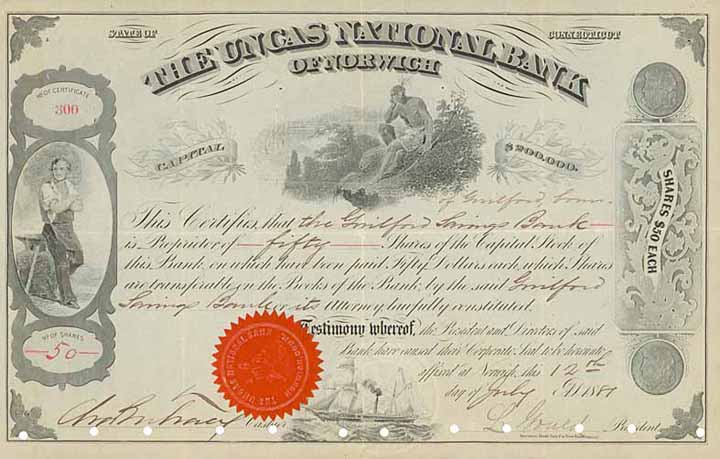 STATE OF
CONNECTICUT
THE UNCAS NATIONAL BANK
OF NORWICH
No OF CERTIFICATE
300
CAPITAL
$200,000.
SHARES $50 EACH
of Guilford, Conn.
This Certifies, that the Guilford Savings Bank
is Proprietor of fifty Shares of the Capital Stock of
this Bank, on which have been paid Fifty Dollars each, which Shares
are transferable, in the Books of the Bank, by the said Guilford
Savings Bank or its Attorney lawfully constituted.
No OF SHARES
50
Testimony whereof, the President and Directors of said
Bank have caused their Corporate Seal to be hereunto
affixed at Norwich, this 12th
day of July
THE UNCAS NATIONAL BANK
Cashier
President